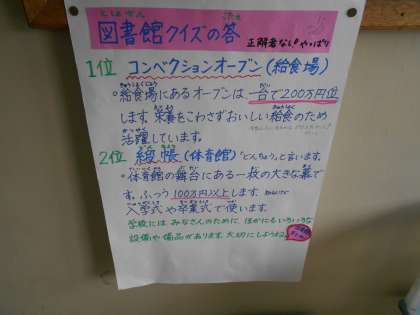 図書館クイズの答
正解者なし!やっぱり
1位 コンベクションオーブン(給食場)
。給食場にあるオーブンは一台で200万円位
します。栄養をこわさずおいしい給食のため
活躍しています。
2位 緞帳(体育館)"どんちょう"と言います。
。体育館の舞台にある一枚の大きな幕で
す。ふつう100万円以上します。
入学式や卒業式で使います。
学校には みなさんのために ほかにもいろいろな
設備や備品があります。大切にしようね。